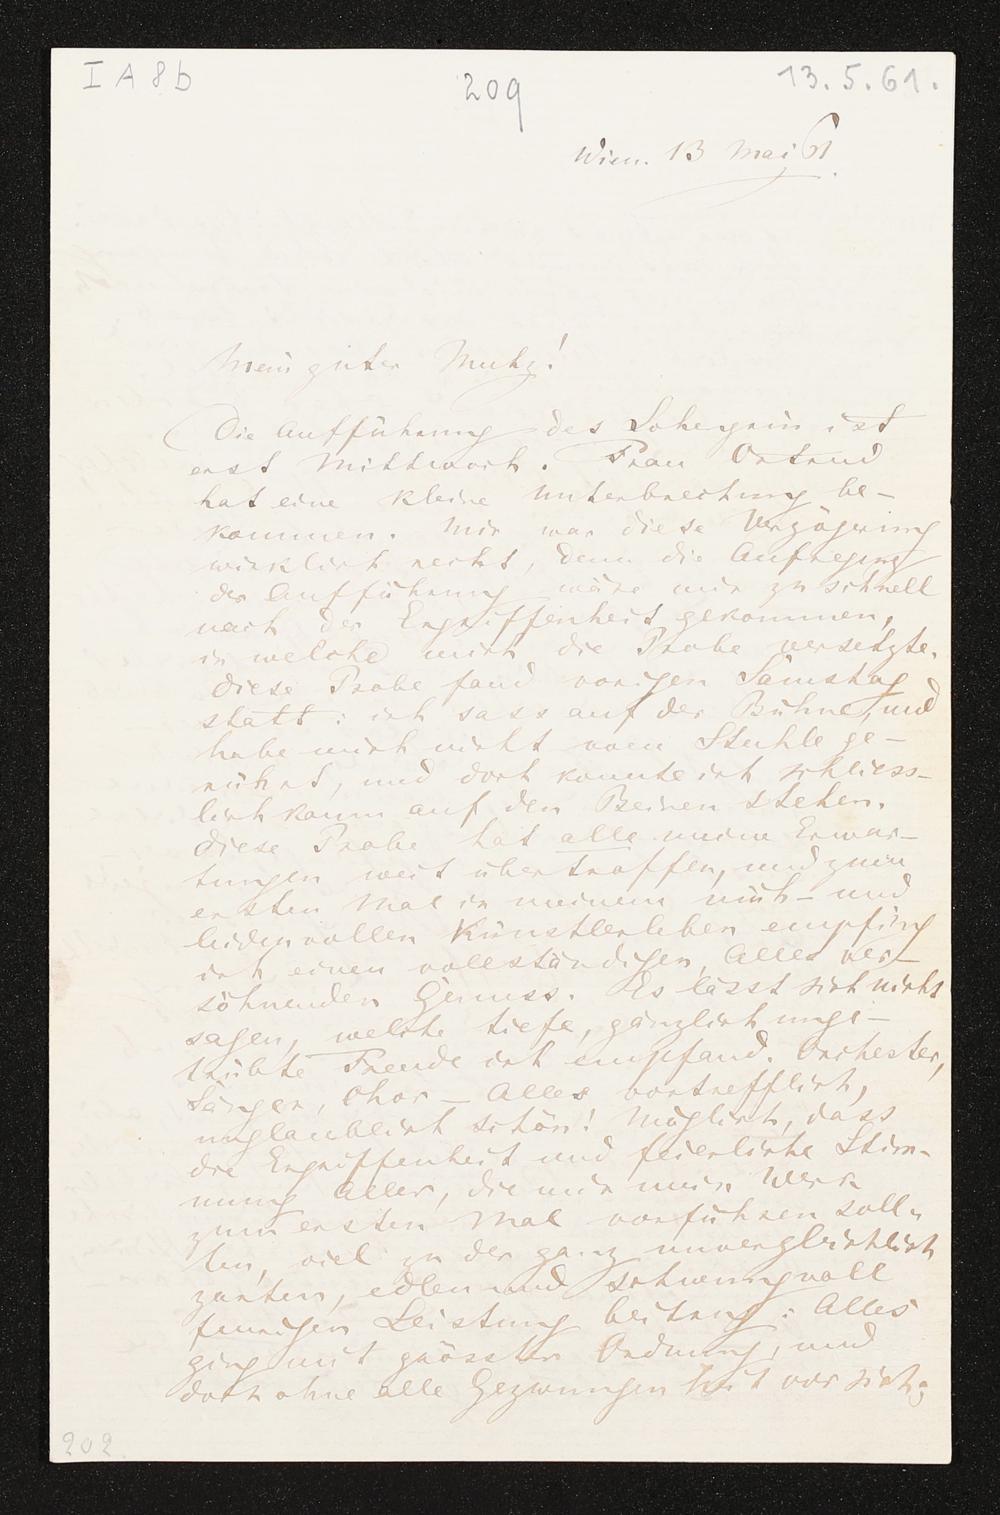 I A 8 b
209
13.5.61.
Wien. 13 Mai 61.
Mein guter Mutz!
Die Aufführung des Lohengrin ist
erst Mittwoch. Frau Ortrud
hat eine kleine Unterbrechung be-
kommen. Mir war diese Verzögerung
wirklich recht, denn die Aufregung
der Aufführung wäre mir zu schnell
nach der Ergriffenheit gekommen,
in welche mich die Probe versetzte.
Diese Probe fand vorigen Samstag
statt: ich sass auf der Bühne, und
habe mich nicht vom Stuhle ge-
rührt, und doch konnte ich schliess-
lich kaum auf den Beinen stehen.
Diese Probe hat alle meine Erwar-
tungen weit übertroffen, und zum
ersten Mal in meinem müh- und
leidenvollen Künstlerleben empfing
ich einen vollständigen, Alles ver-
söhnenden Genuss. Es lässt sich nicht
sagen, welche tiefe, gänzlich unge-
trübte Freude ich empfand. Orchester,
Sänger, Chor – Alles vortrefflich,
unglaublich schön! Möglich, dass
die Ergriffenheit und feierliche Stim-
mung Aller, die mir mein Werk
zum ersten Mal vorführen soll-
ten, viel zu der ganz unvergleichlich
zarten, edlen und schwungvoll
feurigen Leistung beitrug: Alles
ging mit grösster Ordnung, und
doch ohne alle Gezwungenheit vor sich;
202